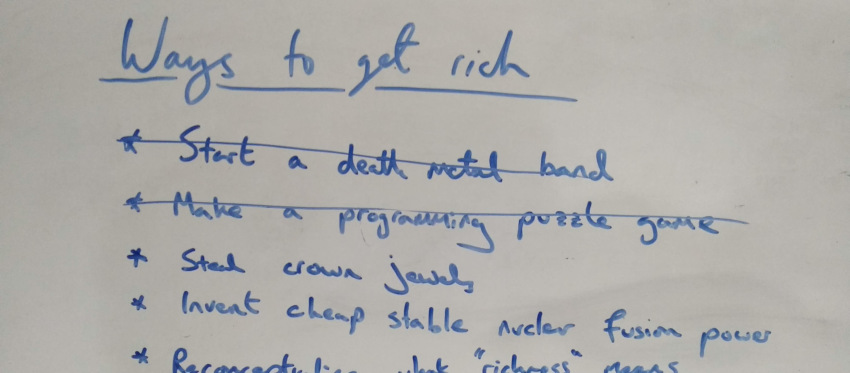 Ways to get rich
* Start a death metal band
* Make a programming puzzle game
* Steal crown jewels
* Invent cheap stable nucler fusion power
* what "richness" means